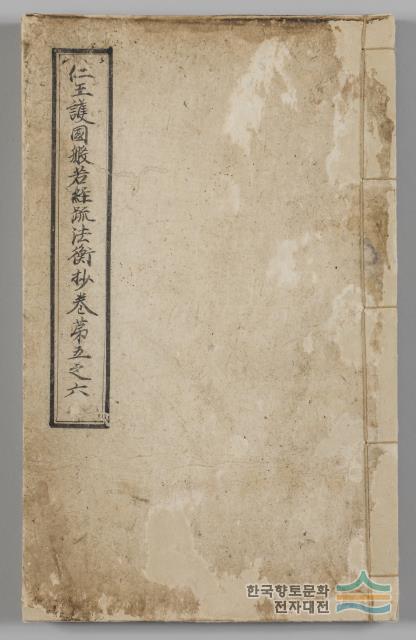 仁王護國般若経䟽法衡抄卷第五之六
한국향토문화
전자대전